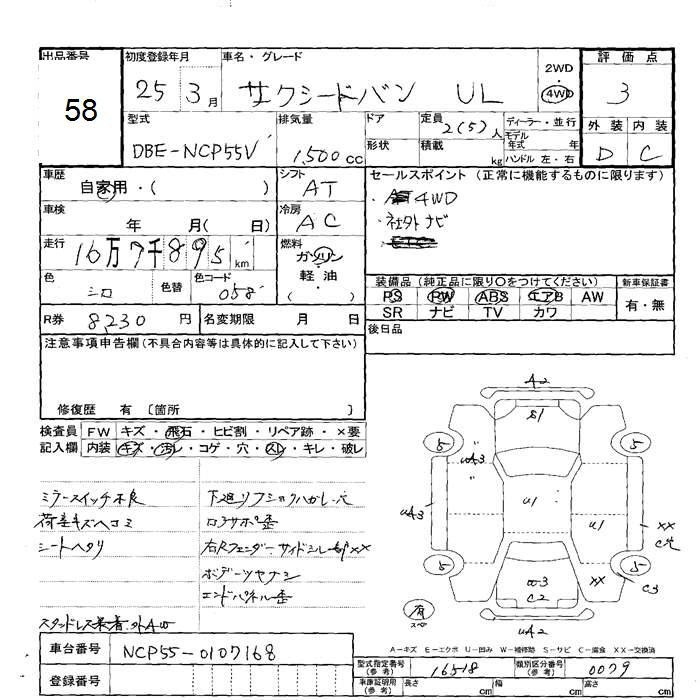 出品番号 58
初度登録年月 25 3月
車名・グレード サクシードバン UL
2WD・4WD
評価点 3
外装 D 内装 C
型式 DBE-NCP55V
排気量 1,500cc
ドア 形状
定員 2(5)人
積載 kg
ディーラー・並行
モデル年式 年
ハンドル 左・右
車歴 自家用・( )
シフト AT
セールスポイント (正常に機能するものに限ります)
・4WD
・社外ナビ
車検 年 月( 日)
冷房 AC
走行 16万7千895km
燃料 ガソリン・軽油・( )
色 シロ 色替
色コード 058
装備品 (純正品に限り〇をつけてください)
PS PW ABS エアB AW
SR ナビ TV カワ
新車保証書 有・無
R券 8230円
名変期限 月 日
後日品
注意事項申告欄(不具合内容等は具体的に記入して下さい)
修復歴 有 〔箇所 〕
検査員記入欄
FW キズ・飛石・ヒビ割・リペア跡・×要
内装 キズ・汚れ・コゲ・穴・スレ・キレ・破レ
ミラースイッチ不良
荷室キズヘコミ
シートヘタリ
ロアサポ歪
右Rフェンダー、サイドシル一部XX
エンドパネル歪
A2
S1
5
5
uA3
uA3
u1
u1
XX
5
5
XX
C3
C2
uA2
有
スペア
A-キズ E-エクボ U-凹み W-補修跡 S-サビ C-腐食 XX-交換済
車台番号 NCP55-0107168
登録番号
型式指定番号(参考) 16518
類別区分番号(参考) 0079
車庫証明用(参考) 長さ cm 幅 cm 高さ cm